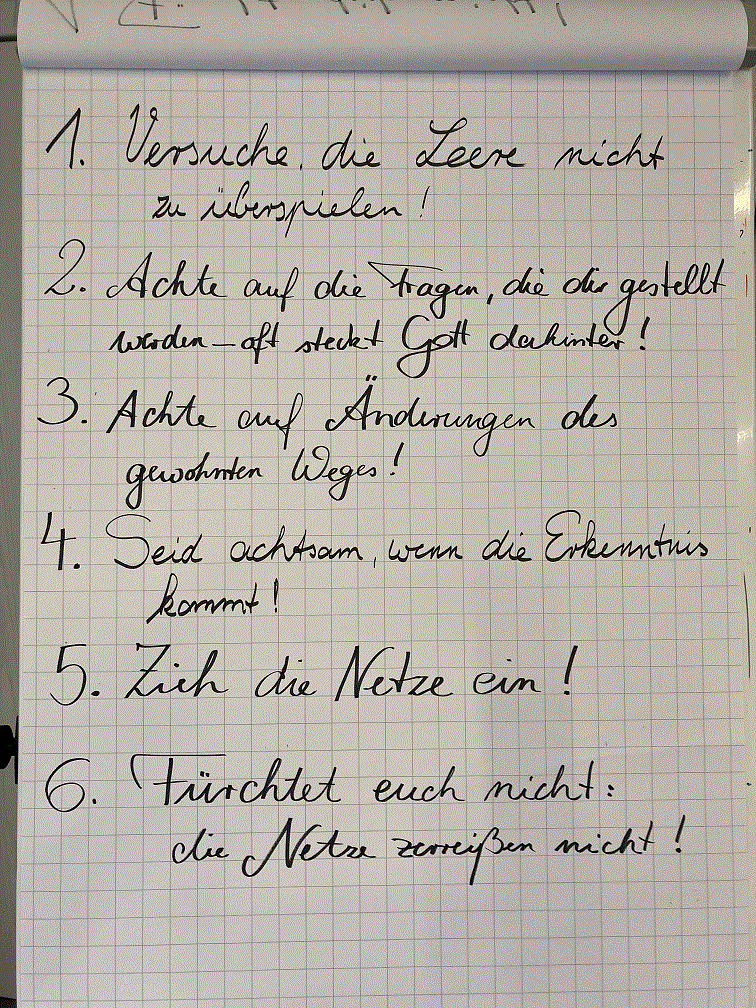 1. Versuche, die Leere nicht
zu überspielen!
2. Achte auf die Fragen, die dir gestellt
werden – oft steckt Gott dahinter!
3. Achte auf Änderungen des
gewohnten Weges!
4. Seid achtsam, wenn die Erkenntnis
kommt!
5. Zieh die Netze ein!
6. Fürchtet euch nicht:
die Netze zerreißen nicht!